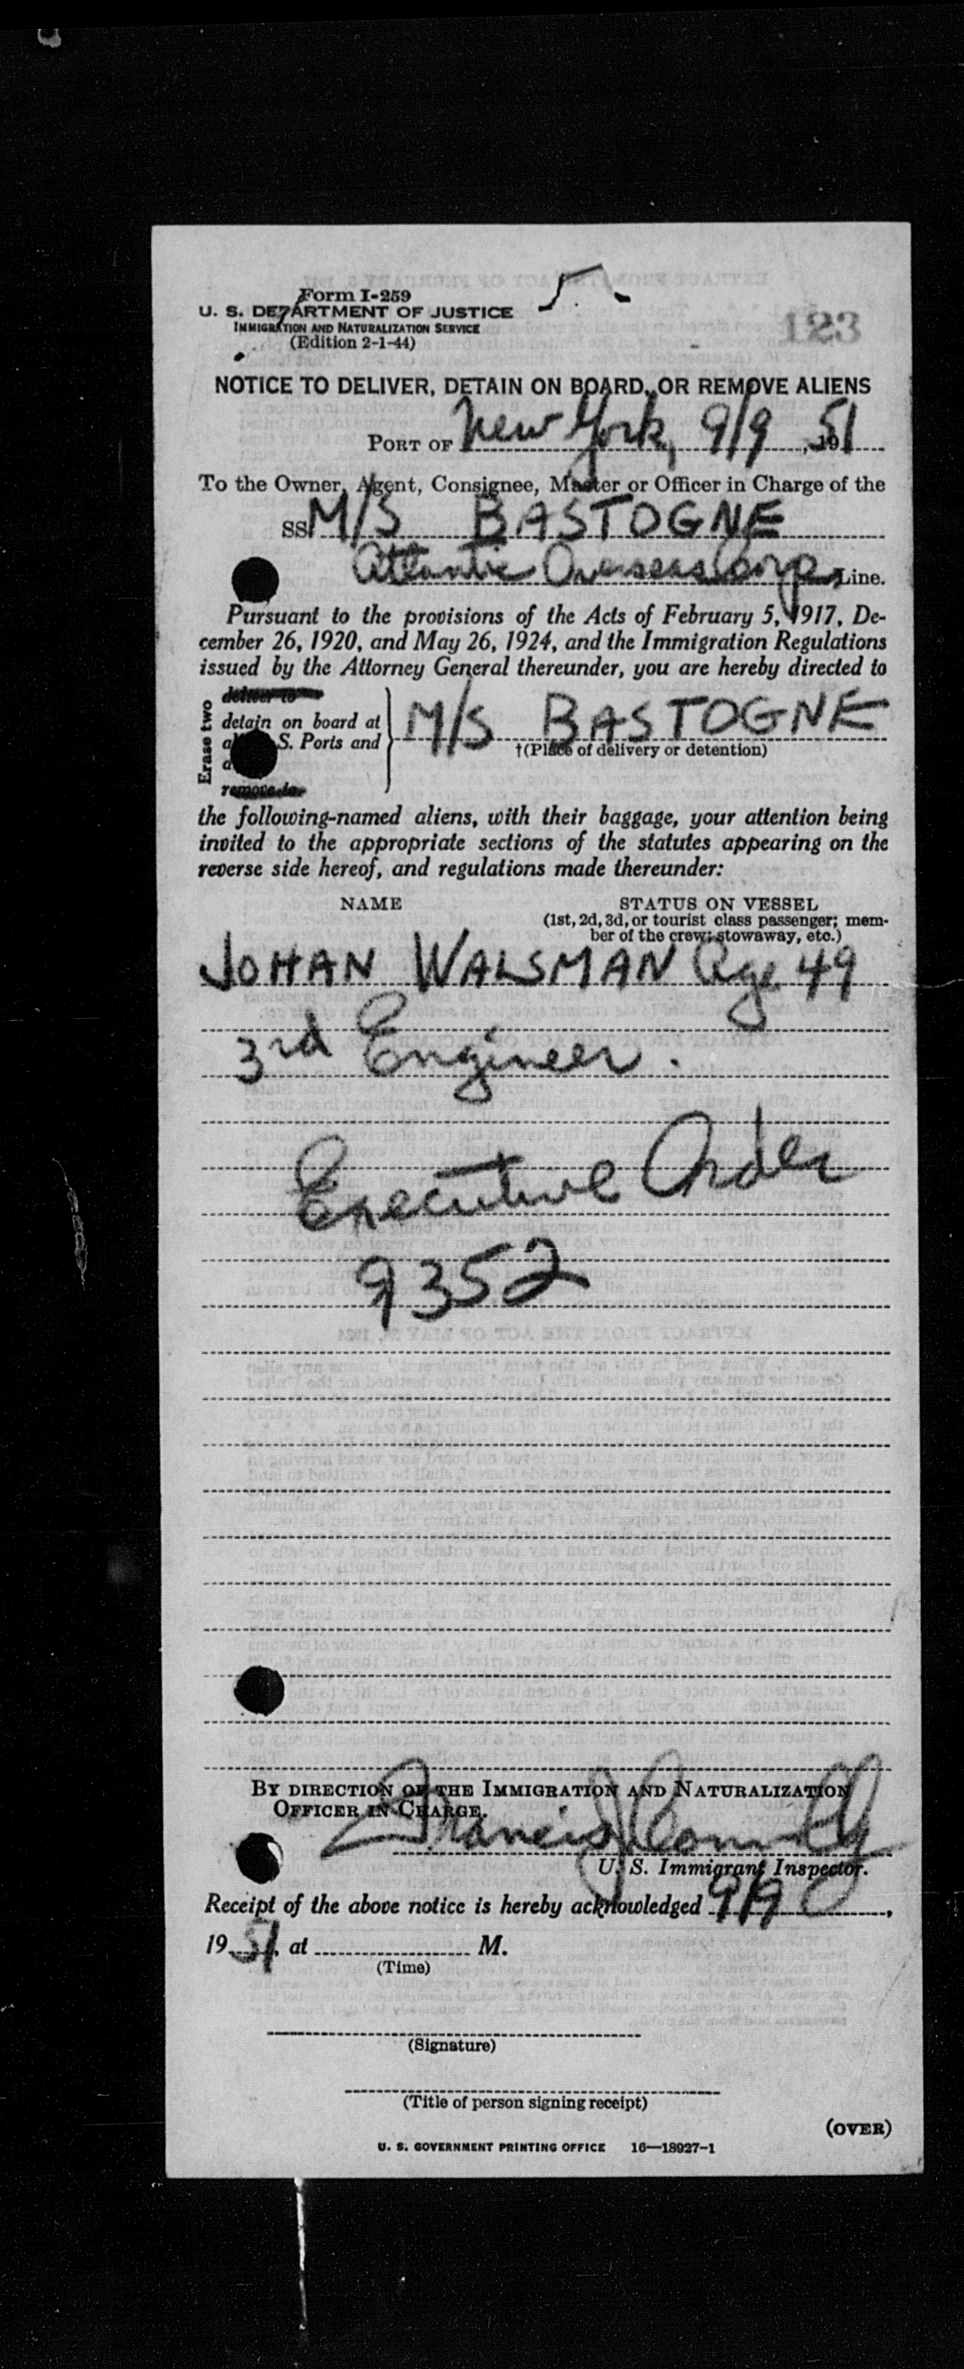 Form I-259
U. S. DEPARTMENT OF JUSTICE
IMMIGRATION AND NATURALIZATION SERVICE
(Edition 2-1-44)
5.-
123
NOTICE TO DELIVER, DETAIN ON BOARD, OR REMOVE ALIENS
PORT OF New York, 9/9, 1951
To the Owner, Agent, Consignee, Master or Officer in Charge of the
SS M/S BASTOGNE
Atlantic Overseas Corp, Line.
Pursuant to the provisions of the Acts of February 5, 1917, De-
cember 26, 1920, and May 26, 1924, and the Immigration Regulations
issued by the Attorney General thereunder, you are hereby directed to
Erase two
deliver to
detain on board at
S. Ports and
remove to
M/S BASTOGNE
†(Place of delivery or detention)
the following-named aliens, with their baggage, your attention being
invited to the appropriate sections of the statutes appearing on the
reverse side hereof, and regulations made thereunder:
NAME STATUS ON VESSEL
(1st, 2d, 3d, or tourist class passenger; mem-
ber of the crew; stowaway, etc.)
JOHAN WALSMAN Age 49
3rd Engineer.
Executive Order
9352
BY DIRECTION OF THE IMMIGRATION AND NATURALIZATION
OFFICER IN CHARGE.
Francis J Connolly
U. S. Immigrant Inspector.
Receipt of the above notice is hereby acknowledged 9/9,
1951, at M.
(Time)
(Signature)
(Title of person signing receipt)
(OVER)
U. S. GOVERNMENT PRINTING OFFICE 16—18927-1